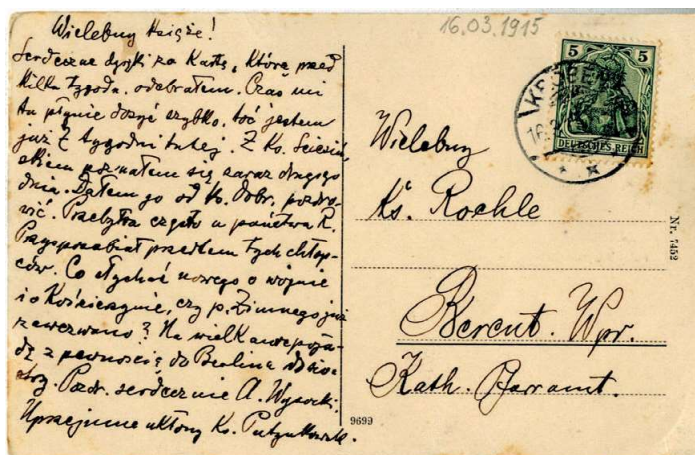 16.03.1915
Wielebny Księże!
Serdeczne dzięki za Kartę, którą przed
kilku tygodn. odebrałem. Czas mi
tu płynie dosyć szybko, toć jestem
już 7 tygodni tutaj. Z Ks.
poznałem się zaraz drugiego
dnia. Dałem go od Ks. Dobr. pozdro-
wić. Przebywa często u państwa R.
przedtem tych chłop-
ców. Co słychać nowego o wojnie
i o Kościerzynie, czy p. Zimnego już
zawezwano? Na wielkanoc poja-
dę z pewnością do Berlina do
Pozdr. serdecznie A. Wysocki.
Uprzejme ukłony Ks.
5
DEUTSCHES REICH
Wielebny
Ks. Roehle
Berent. Wpr.
Kath. Pfarramt.
Nr. 7452
9699